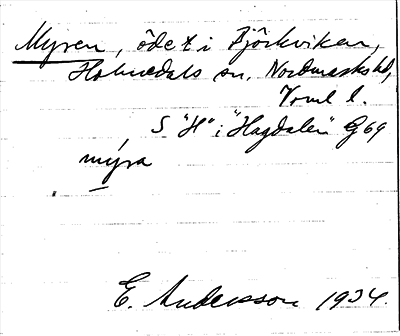 Myren, ödet i Björkviken,
Holmedals sn, Nordmarks hd,
Värml l.
S "H" i "Hagdalen" G69
mýra
E. Andersson 1934.